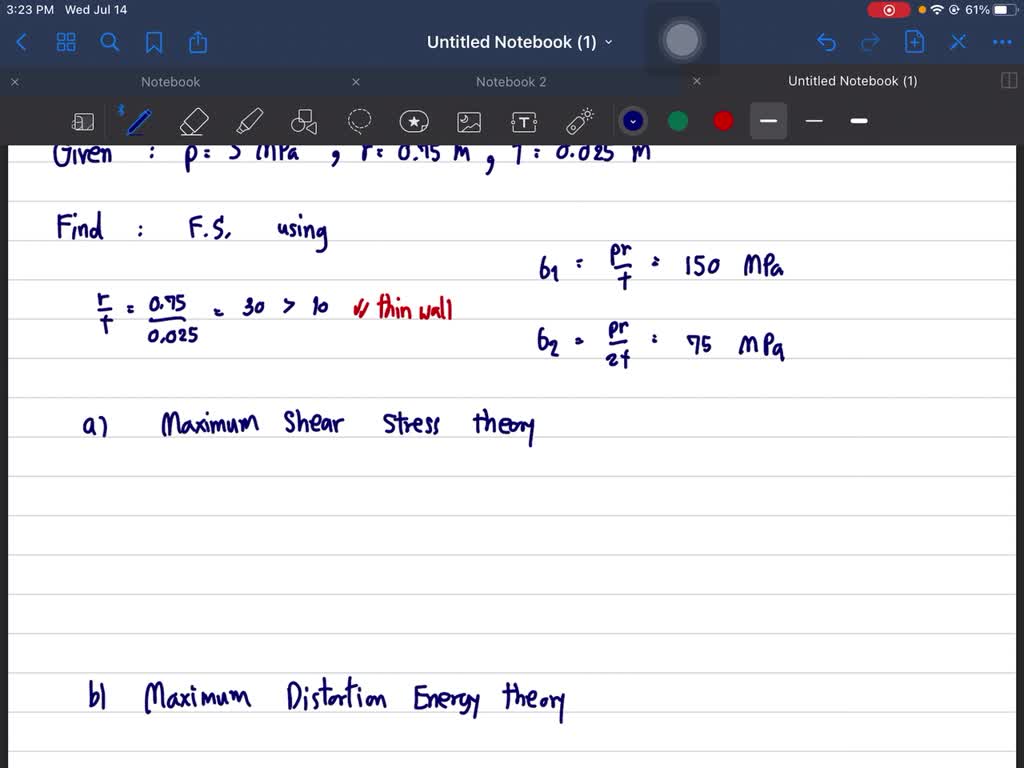 3:23 PM Wed Jul 14
61%
Untitled Notebook (1)
Notebook
Notebook 2
Untitled Notebook (1)
Given : p = 5 MPa , r = 0.75 m , t = 0.025 m
Find : F.S. using
σ1 = pr/t = 150 MPa
r/t = 0.75/0.025 = 30 > 10 thin wall
σ2 = pr/2t = 75 MPa
a) Maximum Shear Stress theory
b) Maximum Distortion Energy theory